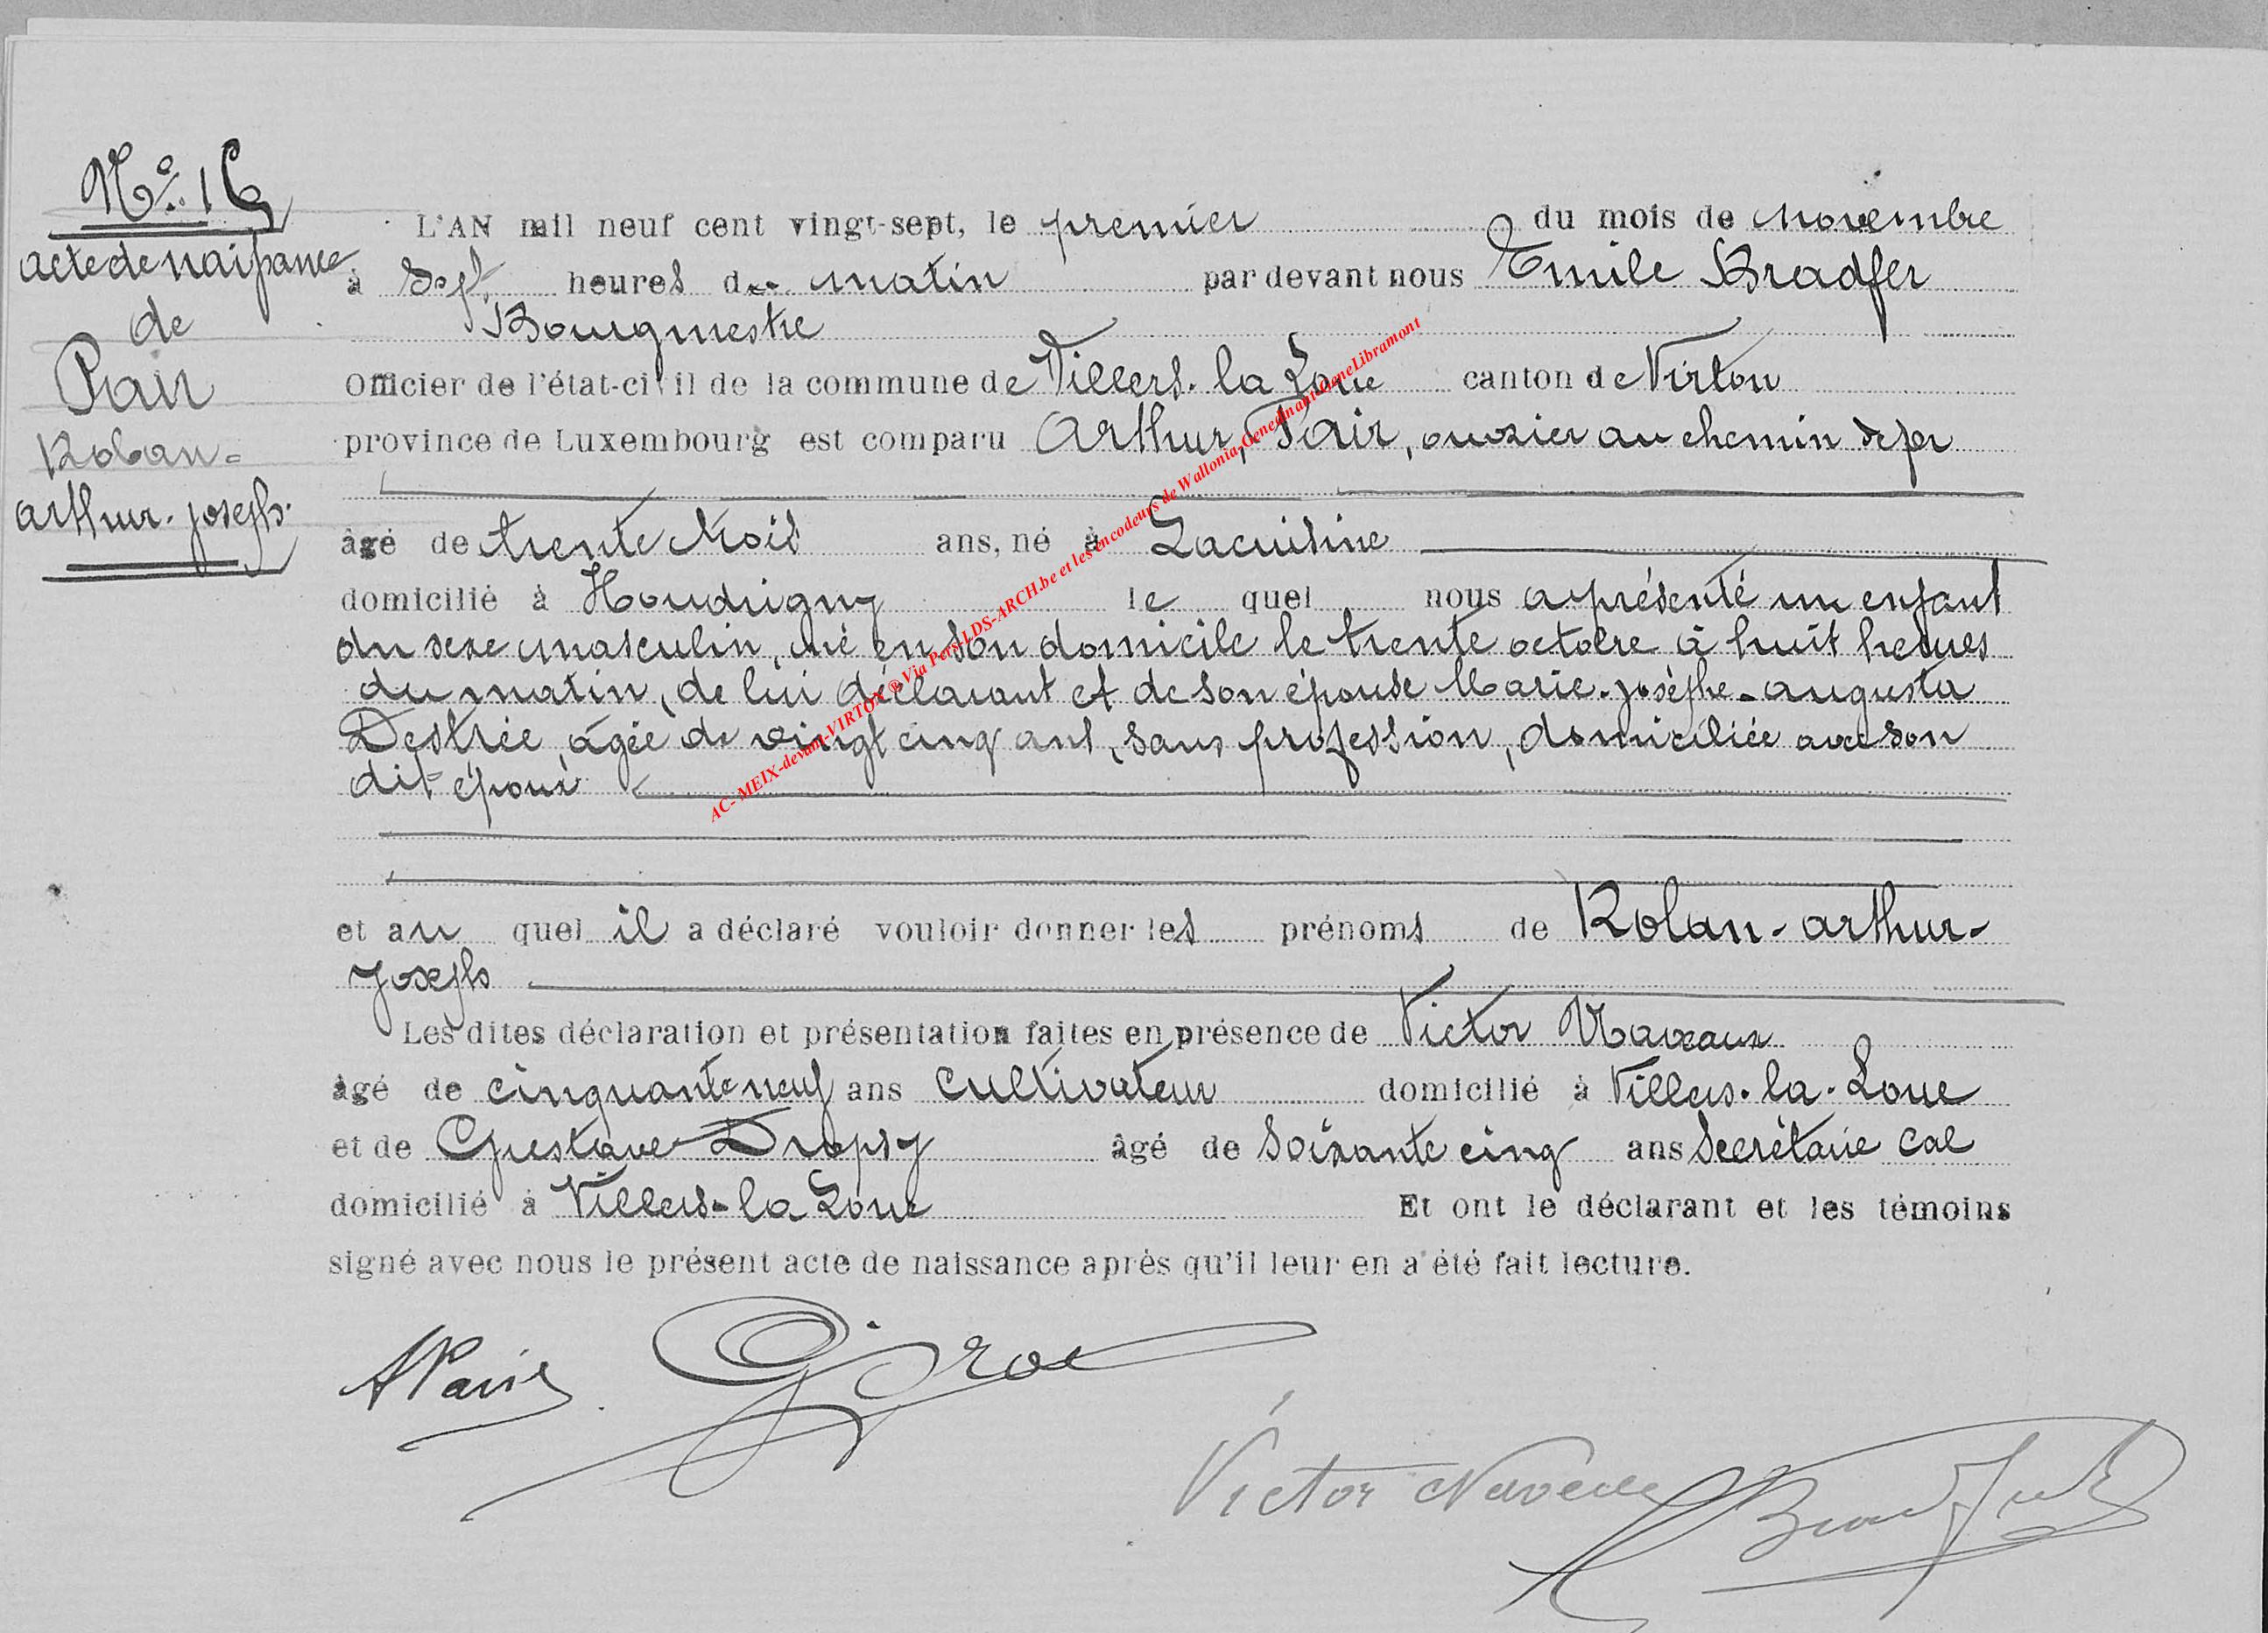 N° 16
acte de naissance
de
Pair
Rolan-
arthur-joseph.
L'AN mil neuf cent vingt-sept, le premier du mois de Novembre
à Sept heures du matin par devant nous Emile Bradfer
Bourgmestre
Officier de l'état-civil de la commune de Villers-la Loue canton de Virton
province de Luxembourg est comparu Arthur, Pair, ouvrier au chemin de fer
âgé de trente trois ans, né à Lacuisine
domicilié à Houdrigny le quel nous a présenté un enfant
du sexe masculin, né en son domicile le trente octobre à huit heures
du matin, de lui déclarant et de son épouse Marie-josèphe-augusta
Destrée âgée de vingt cinq ans, sans profession, domiciliée avec son
dit époux
et au quel il a déclaré vouloir donner les prénoms de Rolan-arthur-
Joseph
Les dites déclaration et présentation faites en présence de Victor Navaux
âgé de cinquante neuf ans cultivateur domicilié à Villers-la-Loue
et de Gustave Dropsy âgé de soixante cinq ans Secrétaire cal
domicilié à Villers-la Loue Et ont le déclarant et les témoins
signé avec nous le présent acte de naissance après qu'il leur en a été fait lecture.
APair
Victor
AC- MEIX-devant-VIRTON ® Via Pers-LDS-ARCH.be et les encodeurs de Wallonia,Genedinant,GeneLibramont